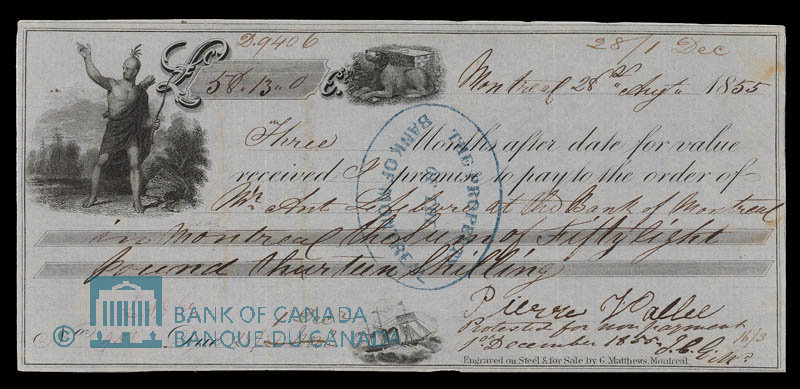 D.9406
28/1 Dec
£ 58.13.0 Cy
Montreal 28th Augt 1855
Three Months after date for value
received I promise to pay to the order of
Mr. Ant Lefebvre at the Bank of Montreal
in Montreal the Sum of Fifty Eight
pound thirteen Shilling
THE PROPERTY
OF THE
BANK OF MONTREAL
Pierre Vallee
Protested for non payment
1st December 1855. J.C.G.
16/3
BANK OF CANADA
BANQUE DU CANADA
©
Due
Engraved on Steel & for Sale by G. Matthews, Montreal.